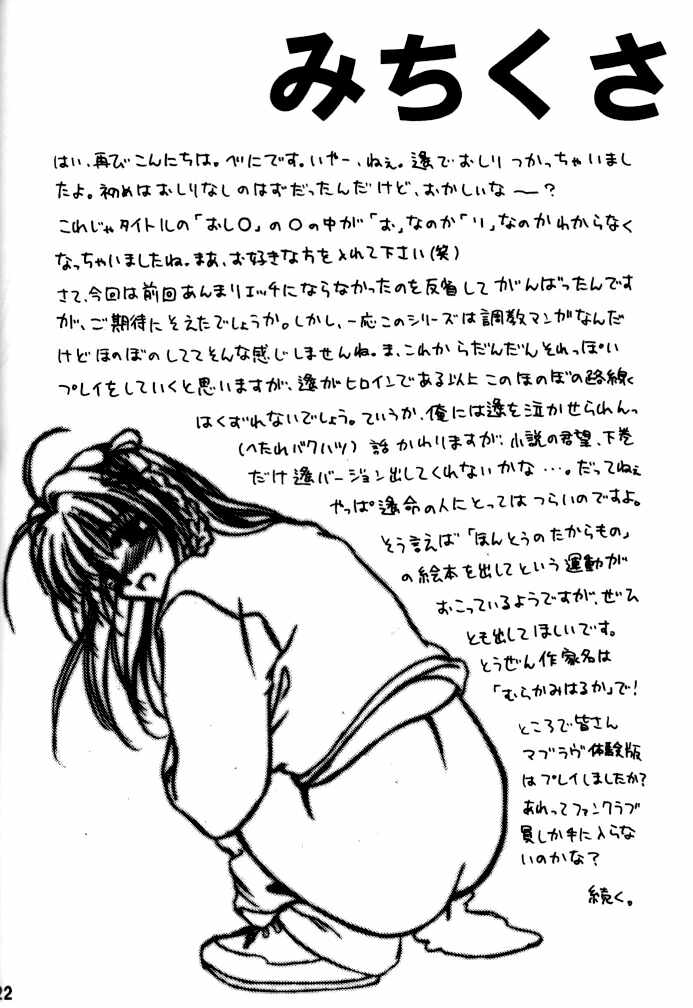 みちくさ
はい、再びこんにちは。べにです。いやー、ねぇ。遙でおしりつかっちゃいまし
たよ。初めはおしりなしのはずだったんだけど、おかしいな〜?
これじゃタイトルの「おし〇」の〇の中が「お」なのか「り」なのかわからなく
なっちゃいましたね。まあ、お好きな方を入れて下さい(笑)
さて、今回は前回あんまりエッチにならなかったのを反省してがんばったんです
が、ご期待にそえたでしょうか。しかし、一応このシリーズは調教マンがなんだ
けどほのぼのしててそんな感じしませんね。ま、これからだんだんそれっぽい
プレイをしていくと思いますが、遙がヒロインである以上このほのぼの路線
はくずれないでしょう。ていうか、俺には遙を泣かせられんっ
(へたれバクハツ) 話かわりますが、小説の君望、下巻
だけ遙バージョン出してくれないかな…。だってねぇ
やっぱ遙命の人にとってはつらいのですよ。
そう言えば「ほんとうのたからもの」
の絵本を出してという運動が
おこっているようですが、ぜひ
とも出してほしいです。
とうぜん作家名は
「むらかみはるか」で!
ところで皆さん
マブラヴ体験版
はプレイしましたか?
あれってファンクラブ
員しか手に入らな
いのかな?
続く。
22